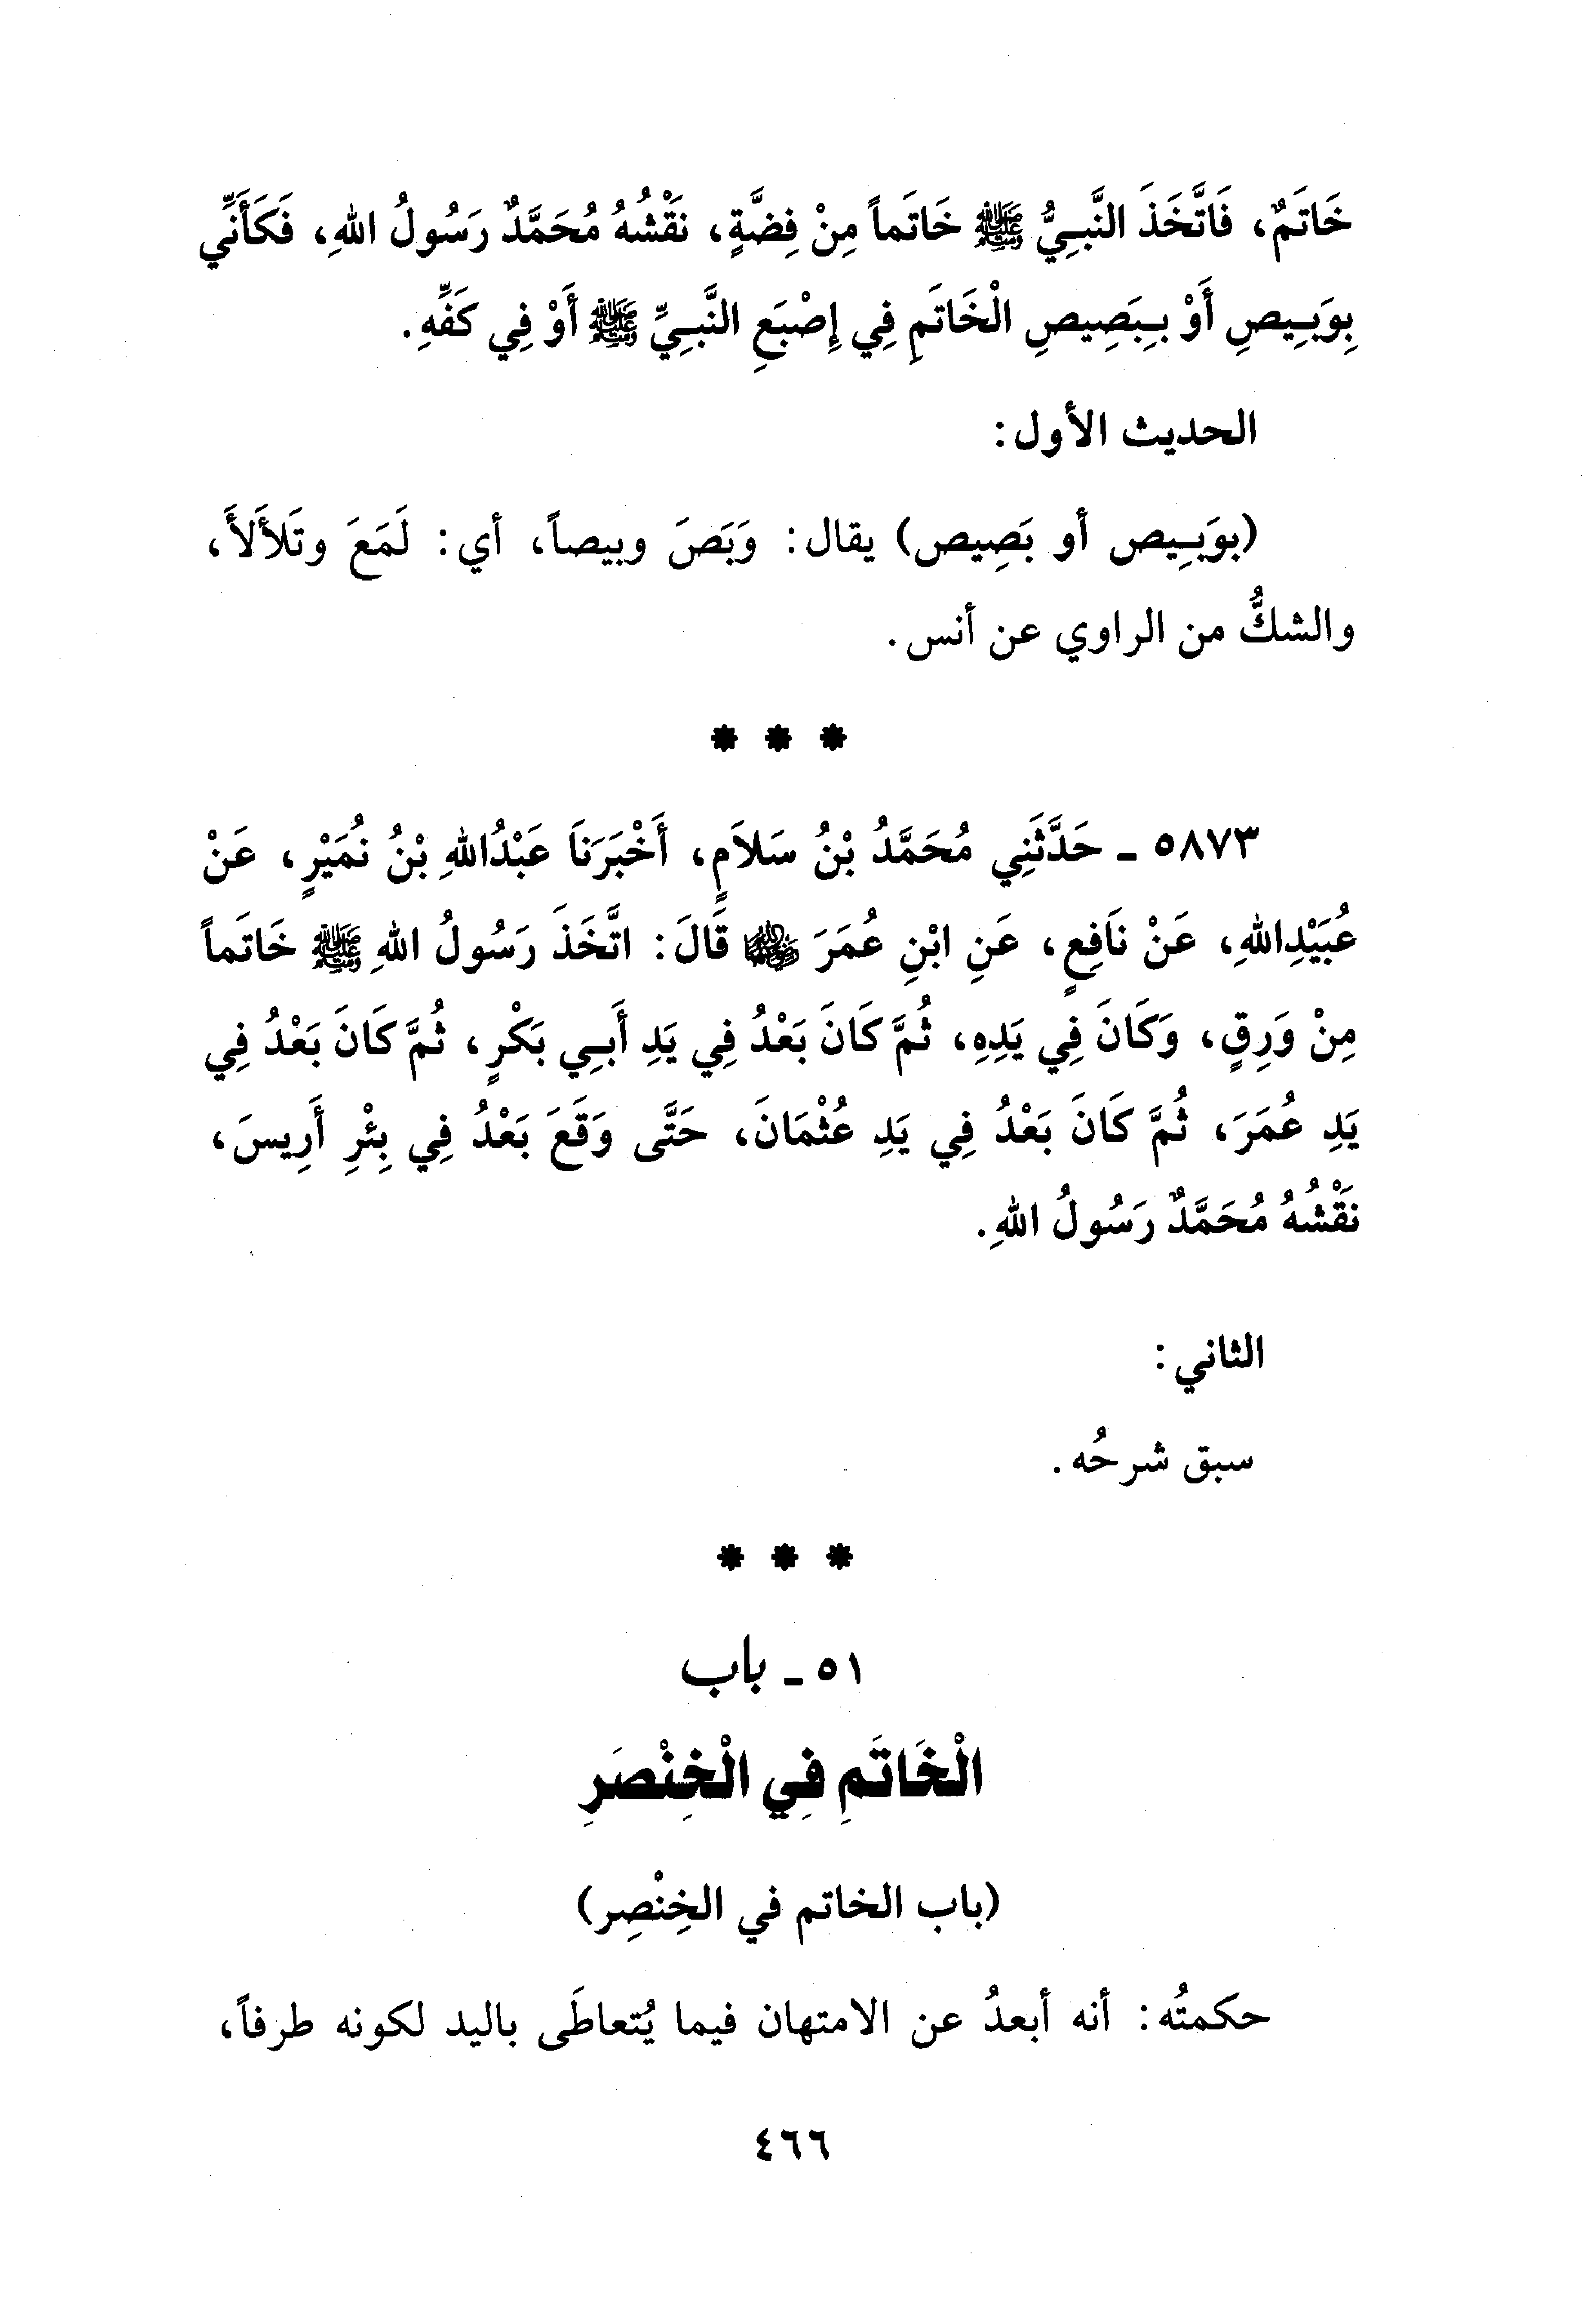 خَاتَمٌ، فَاتَّخَذَ النَّبِيُّ ﷺ خَاتَماً مِنْ فِضَّةٍ، نَقْشُهُ مُحَمَّدٌ رَسُولُ اللهِ، فَكَأَنِّي
بِوَبِيصِ أَوْ بِبَصِيصِ الْخَاتَمِ فِي إِصْبَعِ النَّبِيِّ ﷺ أَوْ فِي كَفِّهِ.
الحديث الأول:
(بوَبِيص أو بَصِيص) يقال: وَبَصَ وبيصاً، أي: لَمَعَ وتَلأَلأَ،
والشكُّ من الراوي عن أنس.
* * *
٥٨٧٣ - حَدَّثَنِي مُحَمَّدُ بْنُ سَلاَمٍ، أَخْبَرَنَا عَبْدُاللهِ بْنُ نُمَيْرٍ، عَنْ
عُبَيْدِاللهِ، عَنْ نَافِعٍ، عَنِ ابْنِ عُمَرَ ﵁ قَالَ: اتَّخَذَ رَسُولُ اللهِ ﷺ خَاتَماً
مِنْ وَرِقٍ، وَكَانَ فِي يَدِهِ، ثُمَّ كَانَ بَعْدُ فِي يَدِ أَبِي بَكْرٍ، ثُمَّ كَانَ بَعْدُ فِي
يَدِ عُمَرَ، ثُمَّ كَانَ بَعْدُ فِي يَدِ عُثْمَانَ، حَتَّى وَقَعَ بَعْدُ فِي بِئْرِ أَرِيسَ،
نَقْشُهُ مُحَمَّدٌ رَسُولُ اللهِ.
الثاني:
سبق شرحُه.
* * *
٥١ - باب
الْخَاتَمِ فِي الْخِنْصَرِ
(باب الخاتم في الخِنْصِر)
حكمتُه: أنه أبعدُ عن الامتهان فيما يُتعاطَى باليد لكونه طرفاً،
٤٦٦